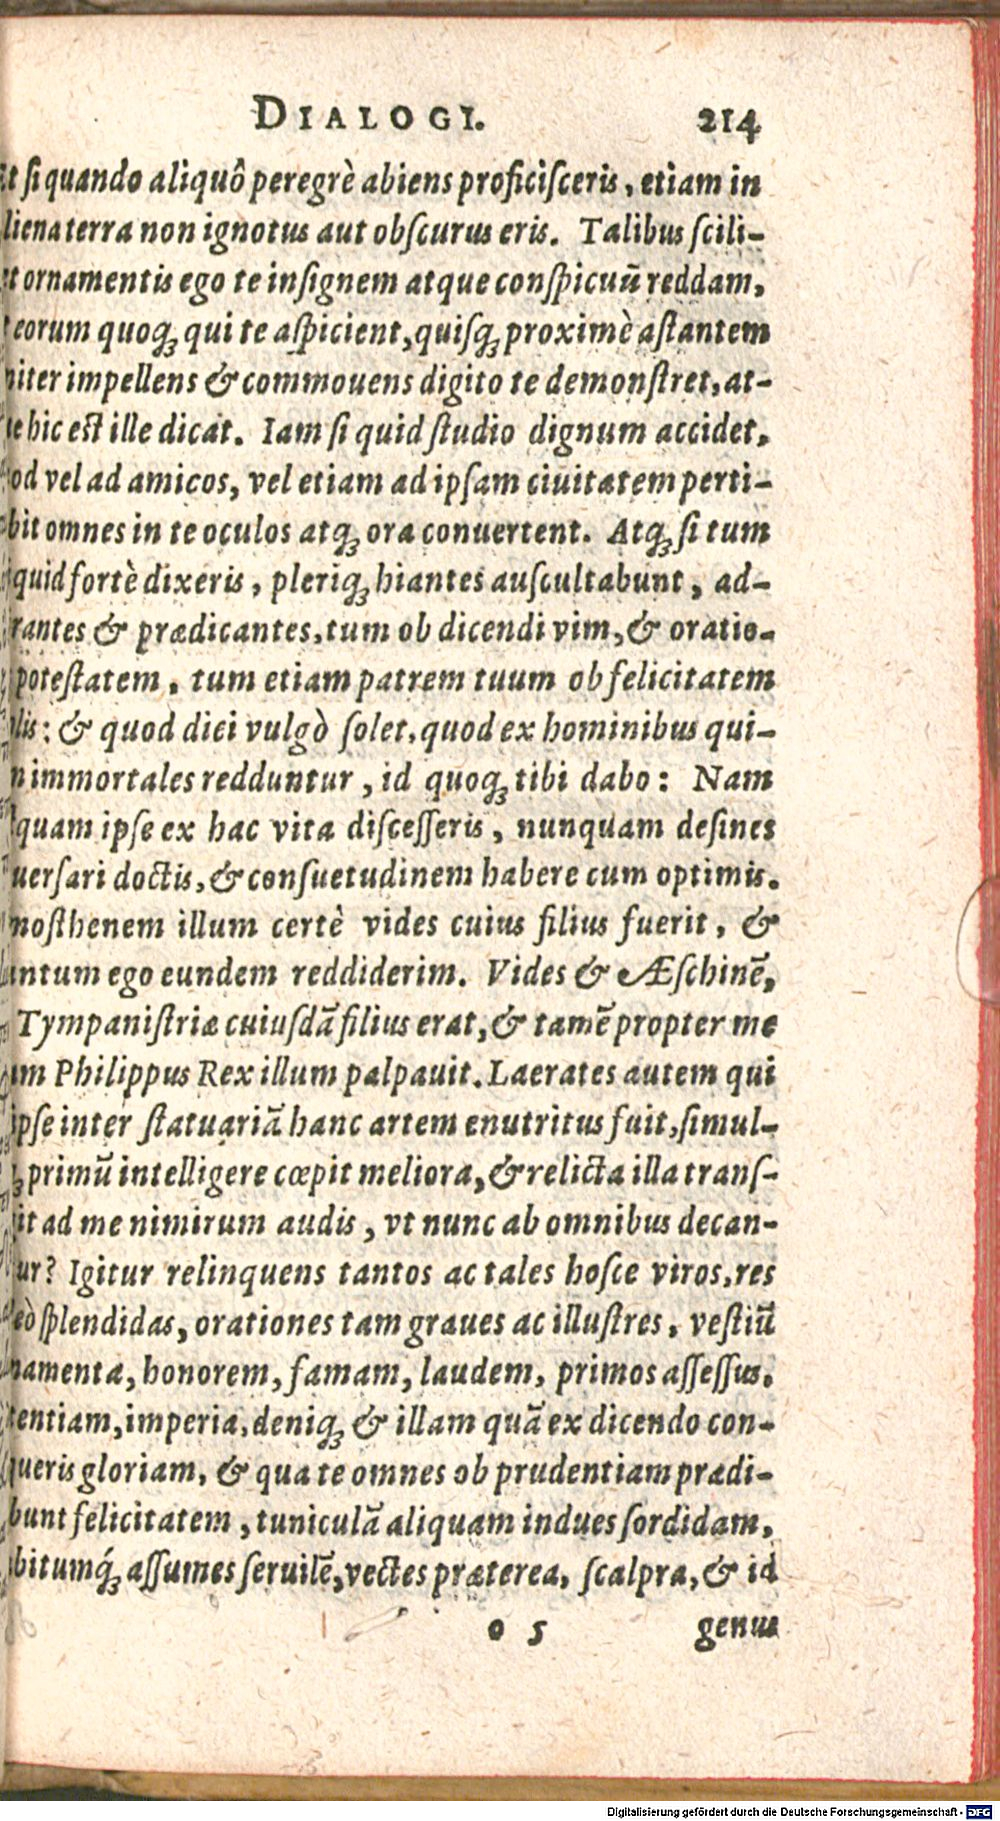 DIALOGI. 214
t si quando aliquô peregrè abiens proficisceris, etiam in
liena terra non ignotus aut obscurus eris. Talibus scili-
t ornamentis ego te insignem atque conspicuū reddam,
eorum quoq; qui te aspicient, quisq; proximè astantem
niter impellens & commouens digito te demonstret, at-
e hic est ille dicat. Iam si quid studio dignum accidet,
od vel ad amicos, vel etiam ad ipsam ciuitatem perti-
bit omnes in te oculos atq; ora conuertent. Atq; si tum
quid fortè dixeris, pleriq; hiantes auscultabunt, ad-
rantes & prædicantes, tum ob dicendi vim, & oratio-
potestatem, tum etiam patrem tuum ob felicitatem
lis: & quod dici vulgò solet, quod ex hominibus qui-
n immortales redduntur, id quoq; tibi dabo: Nam
quam ipse ex hac vita discesseris, nunquam desines
uersari doctis, & consuetudinem habere cum optimis.
mosthenem illum certè vides cuius filius fuerit, &
ntum ego eundem reddiderim. Vides & Æschinē,
Tympanistriæ cuiusdā filius erat, & tamē propter me
m Philippus Rex illum palpauit. Laerates autem qui
ipse inter statuariā hanc artem enutritus fuit, simul-
; primū intelligere cœpit meliora, & relicta illa trans-
it ad me nimirum audis, vt nunc ab omnibus decan-
ur? Igitur relinquens tantos ac tales hosce viros, res
eò splendidas, orationes tam graues ac illustres, vestiū
namenta, honorem, famam, laudem, primos assessus,
tentiam, imperia, deniq; & illam quā ex dicendo con-
queris gloriam, & qua te omnes ob prudentiam prædi-
bunt felicitatem, tuniculā aliquam indues sordidam,
bitumq́; assumes seruilē, vectes præterea, scalpra, & id
o 5 genus
Digitalisierung gefördert durch die Deutsche Forschungsgemeinschaft - DFG